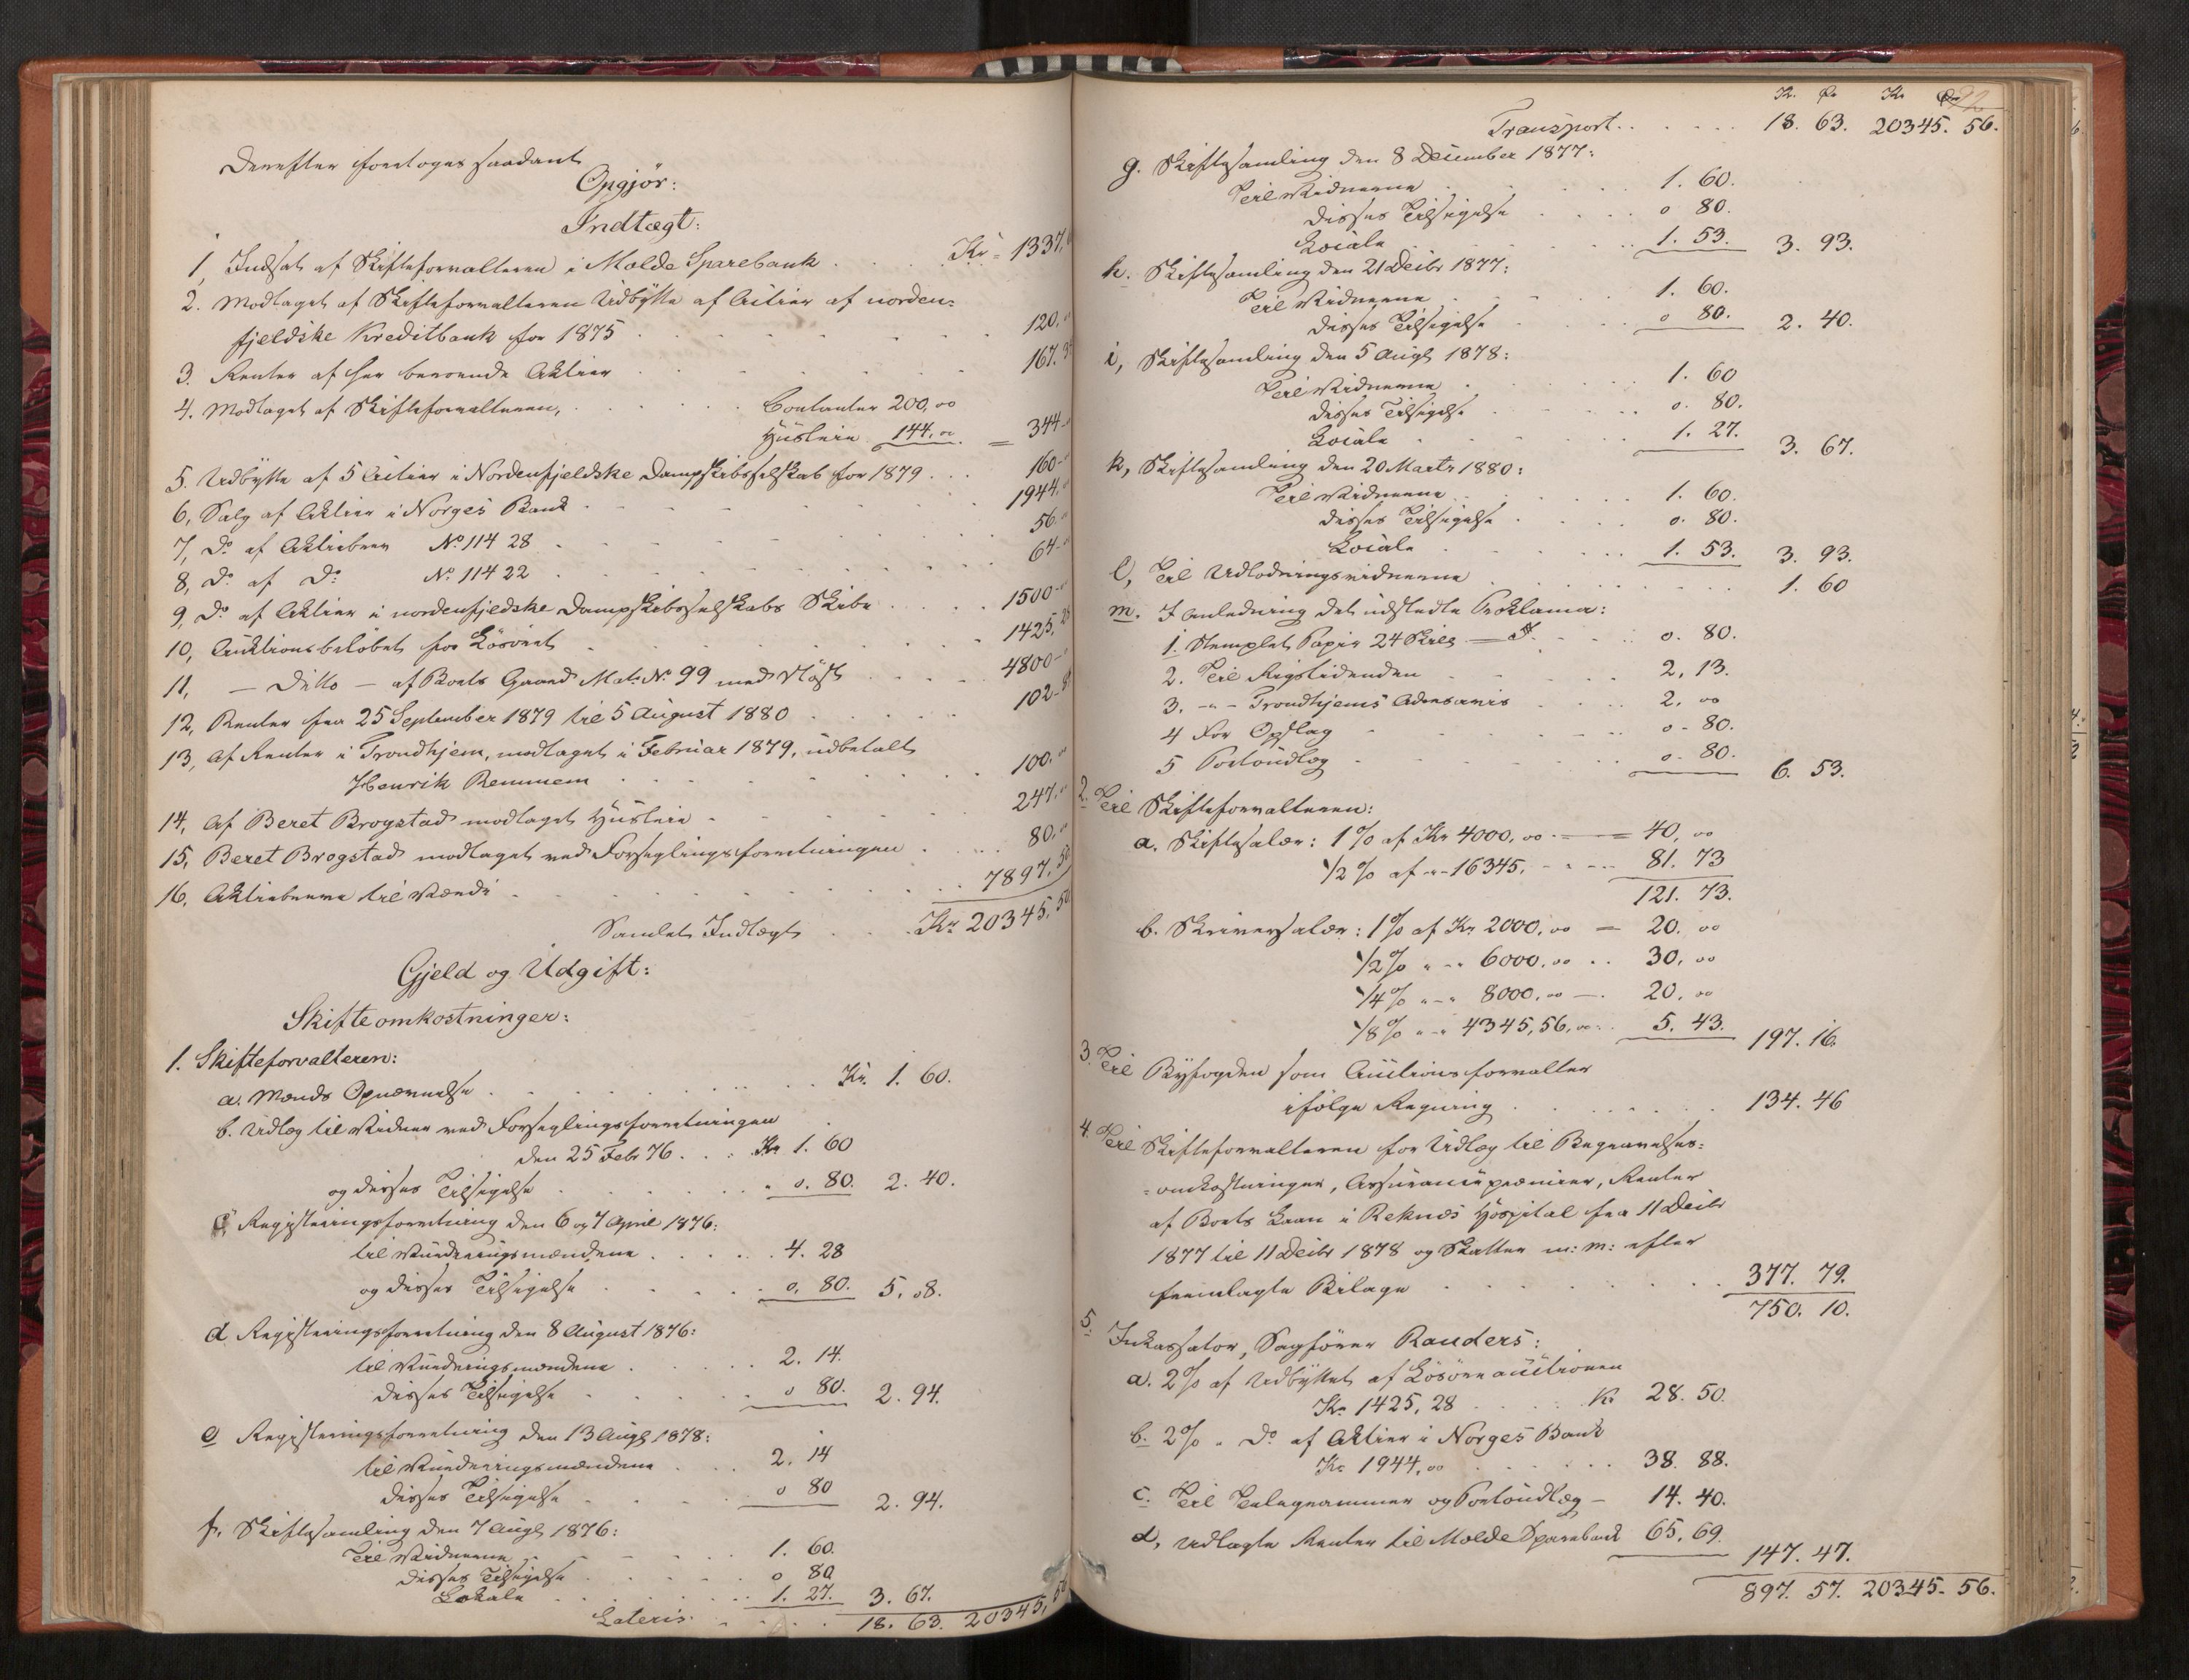 Derefter foretoges saadant
Opgjör:
Indtægt:
1, Indsat af Skifteforvalteren i Molde Sparebank . . . Kr = 1337,
2. Modtaget af Skifteforvalteren Udbytte af Actier af norden=
fjeldske Kreditbank for 1875 . . . 120,00
3. Renter af her beroende Aktier . . . 167.
4. Modtaget af Skifteforvalteren, . . . Contanter 200,00
Husleie 144,00 = 344
5. Udbytte af 5 Actier i Nordenfjeldske Dampskibsselskab for 1879 . . . 160
6, Salg af Aktier i Norges Bank . . . 1944,
7, Do af Aktiebrev No 114 28 . . . 56
8, Do af Do: No 114 22 . . . 64
9, Do af Aktier i nordenfjeldske Dampskibsselskabs Skibe . . . 1500
10, Auktionsbeløbet for Lösöret . . . 1425,28
11, — Ditto — af Boets Gaard Mat: No 99 med Nöst . . . 4800
12, Renter fra 25 September 1879 til 5 August 1880 . . . 102
13, Af Renter i Trondhjem, modtaget i Februar 1879, udbetalt
Henrik Remmem . . . 100,00
14, Af Beret Brogstad modtaget Husleie . . . 247,00
15, Beret Brogstad modtaget ved Forseglingsforretningen . . . 80,00
16, Aktiebrevene til Værdi . . . 7897,50
Samlet Indtægt . . . Kr 20345,56
Gjeld og Udgift:
Skifteomkostninger:
1. Skifteforvalteren:
a. Mænds Opnævnelse . . . Kr. 1. 60.
b. Udlæg til Vidner ved Forseglingsforretningen
den 25 Febr 76 . . . Kr 1. 60
og disses Tilsigelse . . . " 0. 80. 2. 40.
c, Registreringsforretning den 6 og 7 April 1876:
til Vurderingsmændene . . . 4. 28
og disses Tilsigelse . . . 0, 80. 5. 08.
d Registreringsforretning den 8 August 1876:
til Vurderingsmændene . . . 2. 14.
disses Tilsigelse . . . 0 80. 2. 94.
e Registreringsforretning den 13 Augt 1878:
til Vurderingsmændene . . . 2. 14
disses Tilsigelse . . . 0 80 2. 94.
f. Skiftesamling den 7 Augt 1876:
Til Vidnerne . . . 1. 60.
disses Tilsigelse . . . 0 80
Lokale . . . 1. 27. 3. 67.
Lateris . . . 18. 63. 20345,56
Kr. Ør Kr Ør
Transport . . . 18. 63. 20345. 56.
g. Skiftesamling den 8 December 1877:
Til Vidnerne . . . 1. 60.
disses Tilsigelse . . . 0 80.
Locale . . . 1. 53. 3. 93.
h. Skiftesamling den 21 Decbr 1877:
Til Vidnerne . . . 1. 60.
disses Tilsigelse . . . 0 80. 2. 40.
i, Skiftesamling den 5 Augt 1878:
Til Vidnerne . . . 1. 60
disses Tilsigelse . . . 0. 80.
Locale . . . 1. 27. 3. 67.
k, Skiftesamling den 20 Marts 1880:
Til Vidnerne . . . 1. 60.
disses Tilsigelse . . . 0. 80.
Locale . . . 1. 53. 3. 93.
l, Til Udlodningsvidnerne . . . 1. 60
m. I Anledning det udstedte Proklama:
1. Stemplet Papir 24 Skill . . . 0. 80.
2. Til Rigstidenden . . . 2, 13.
3. -"- Trondhjems Adresavis . . . 2, 00
4 For Opslag . . . 0 - 80.
5 Portoudlæg . . . 0. 80. 6. 53.
2. Til Skifteforvalteren:
a. Skiftesalær: 1% af Kr 4000,00 = 40, 00
1/2% af -"- 16345. - - - 81. 73
121. 73.
b. Skriversalær: 1% af Kr 2000,00 = 20. 00
1/2% " - " 6000,00 . . 30, 00
1/4% " - " 8000,00 —. 20, 00
1/8% " - " 4345,56,00 . . 5. 43. 197. 16.
3. Til Byfogden som Auctionsforvalter
ifölge Regning . . . 134. 46
4. Til Skifteforvalteren for Udlæg til Begravelses=
=omkostninger, Assurancepræmier, Renter
af Boets Laan i Reknæs Hospital fra 11 Decbr
1877 til 11 Decbr 1878 og Skatter m: m: efter
fremlagte Bilage . . . 377. 79.
750. 10.
5. Inkassator, Sagförer Randers:
a. 2% af Udbyttet af Lösöreauctionen
Kr 1425,28 . . . Kr 28. 50.
b. 2% " Do af Aktier i Norges Bank
Kr 1944,00 . . . 38. 88.
c. Til Telegrammer og Portoudlæg — 14. 40.
d, Udlagte Renter til Molde Sparebank 65. 69.
147. 47.
897. 57. 20345. 56.